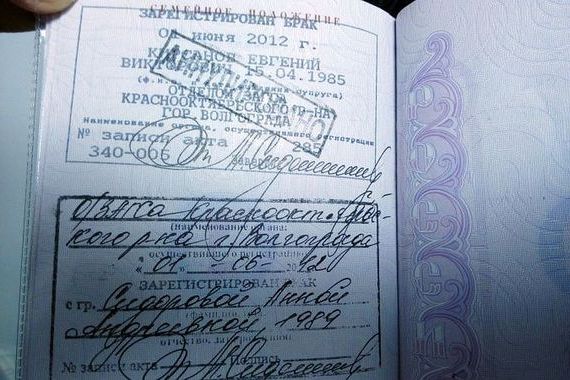 СЕМЕЙНОЕ ПОЛОЖЕНИЕ
ЗАРЕГИСТРИРОВАН БРАК
01 июня 2012 г.
ЕВГЕНИЙ
15.04.1985
ОТДЕЛОМ ЗАГСА
КРАСНООКТЯБРЬСКОГО Р-НА
ГОР. ВОЛГОГРАДА
Наименование органа, осуществившего регистрацию
№ записи акта 285
340-006
О/ЗАГСа Краснооктябрьс-
кого р-на г. Волгограда
(наименование органа,
осуществившего регистрацию)
« 01 » 06
ЗАРЕГИСТРИРОВАН БРАК
с гр. Сидоровой Анной
Андреевной, 1989
отчество, дата рождения
№ записи акта Подпись